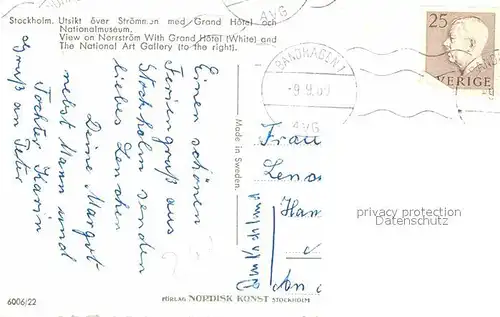 Stockholm. Utsikt över Strömmen med Grand Hôtel och
Nationalmuseum.
View on Norrström With Grand Hôtel (White) and
The National Art Gallery (to the right).
AVG
25
SVERIGE
BANDHAGEN 1
-9.9.60
AVG
Einen schönen
Feriengruß aus
Stockholm senden
liebes Lenchen
Deine Margot
nebst Mann und
Tochter Karin
Gruß an Peter
Made in Sweden.
Frau
Lena
Ham
An
privacy protection
watermark
6006/22
FÖRLAG NORDISK KONST STOCKHOLM